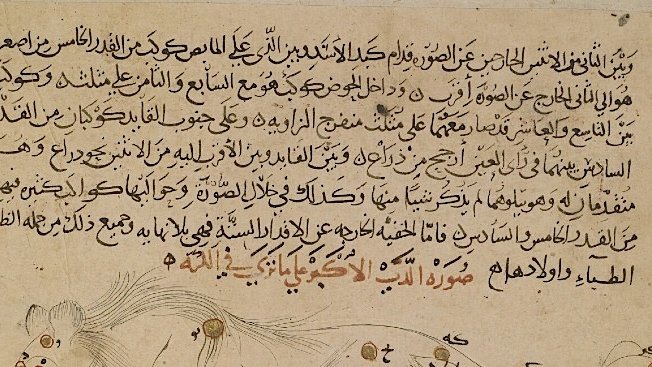 وبين الثاني من الاثنين الخارجين عن الصورة قدام كبد الأسد وبين الذي على المابض كوكب من القدر الخامس من اصغره
هو الى الثاني الخارج عن الصورة أقرب ۞ وداخل الحوض كوكب هو مع السابع والثامن على مثلثه وكوكب
بين التاسع والعاشر قد صار معهما على مثلث منفرج الزاوية ۞ وعلى جنوب القايد كوكبان من القدر
السادس بينهما في رأى العين أرجح من ذراع ۞ وبين القايد وبين الأقرب اليه من الاثنين نحو ذراع وهما
متقدمان له وهو يتلوهما لم يذكر شيئا منها وكذلك في خلال الصورة وحواليها كواكب كثيرة فيها
من القدر الخامس والسادس ۞ فاما الخفية الخارجة عن الاقدار الستة فهي بلا نهاية وجميع ذلك من جملة
الظباء واولادها ۞ صورة الدب الأكبر على ما ترى في الكرة
كه
ح
و